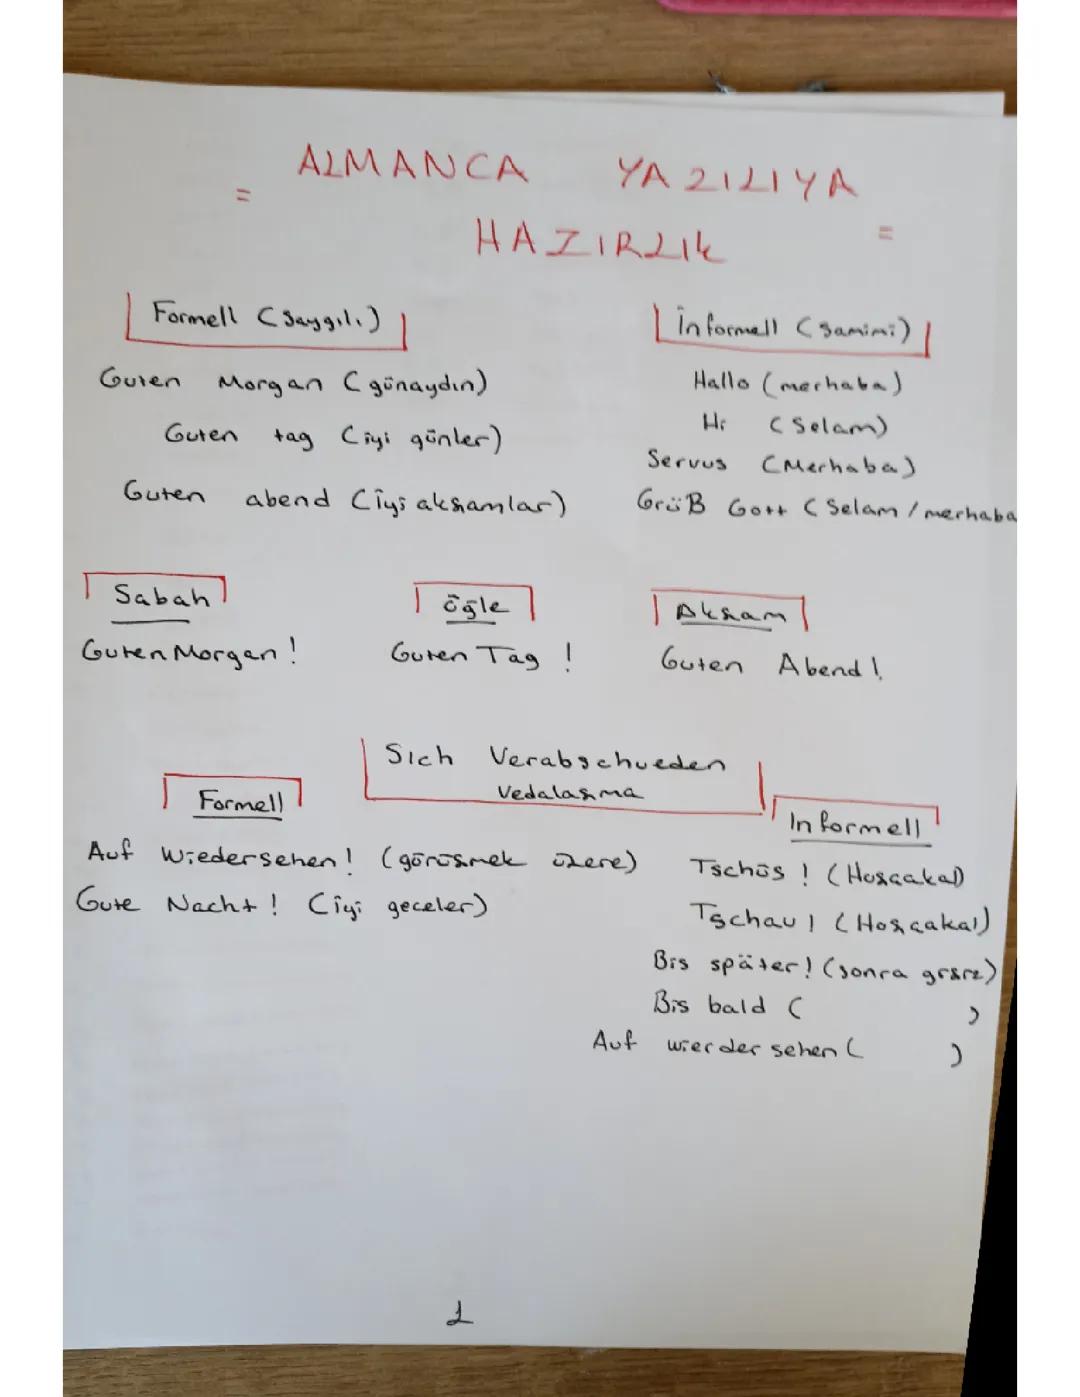 = ALMANCA YAZILIYA
HAZIRLIK =
Formell (Saygılı)
Guten Morgan (günaydın)
Guten tag (iyi günler)
Guten abend (iyi akşamlar)
İnformell (samimi)
Hallo (merhaba)
Hi (Selam)
Servus (Merhaba)
Grüß Gott (Selam / merhaba
Sabah
Guten Morgan!
öğle
Guten Tag !
Akşam
Guten Abend!
Sich Verabschueden
Vedalaşma
Formell
Auf Wiedersehen! (görüşmek üzere)
Gute Nacht! (iyi geceler)
Informell
Tschüs ! (Hoşçakal)
Tschau! (Hoşçakal)
Bis später! (sonra grşrz)
Bis bald ( )
Auf wierder sehen ( )
1